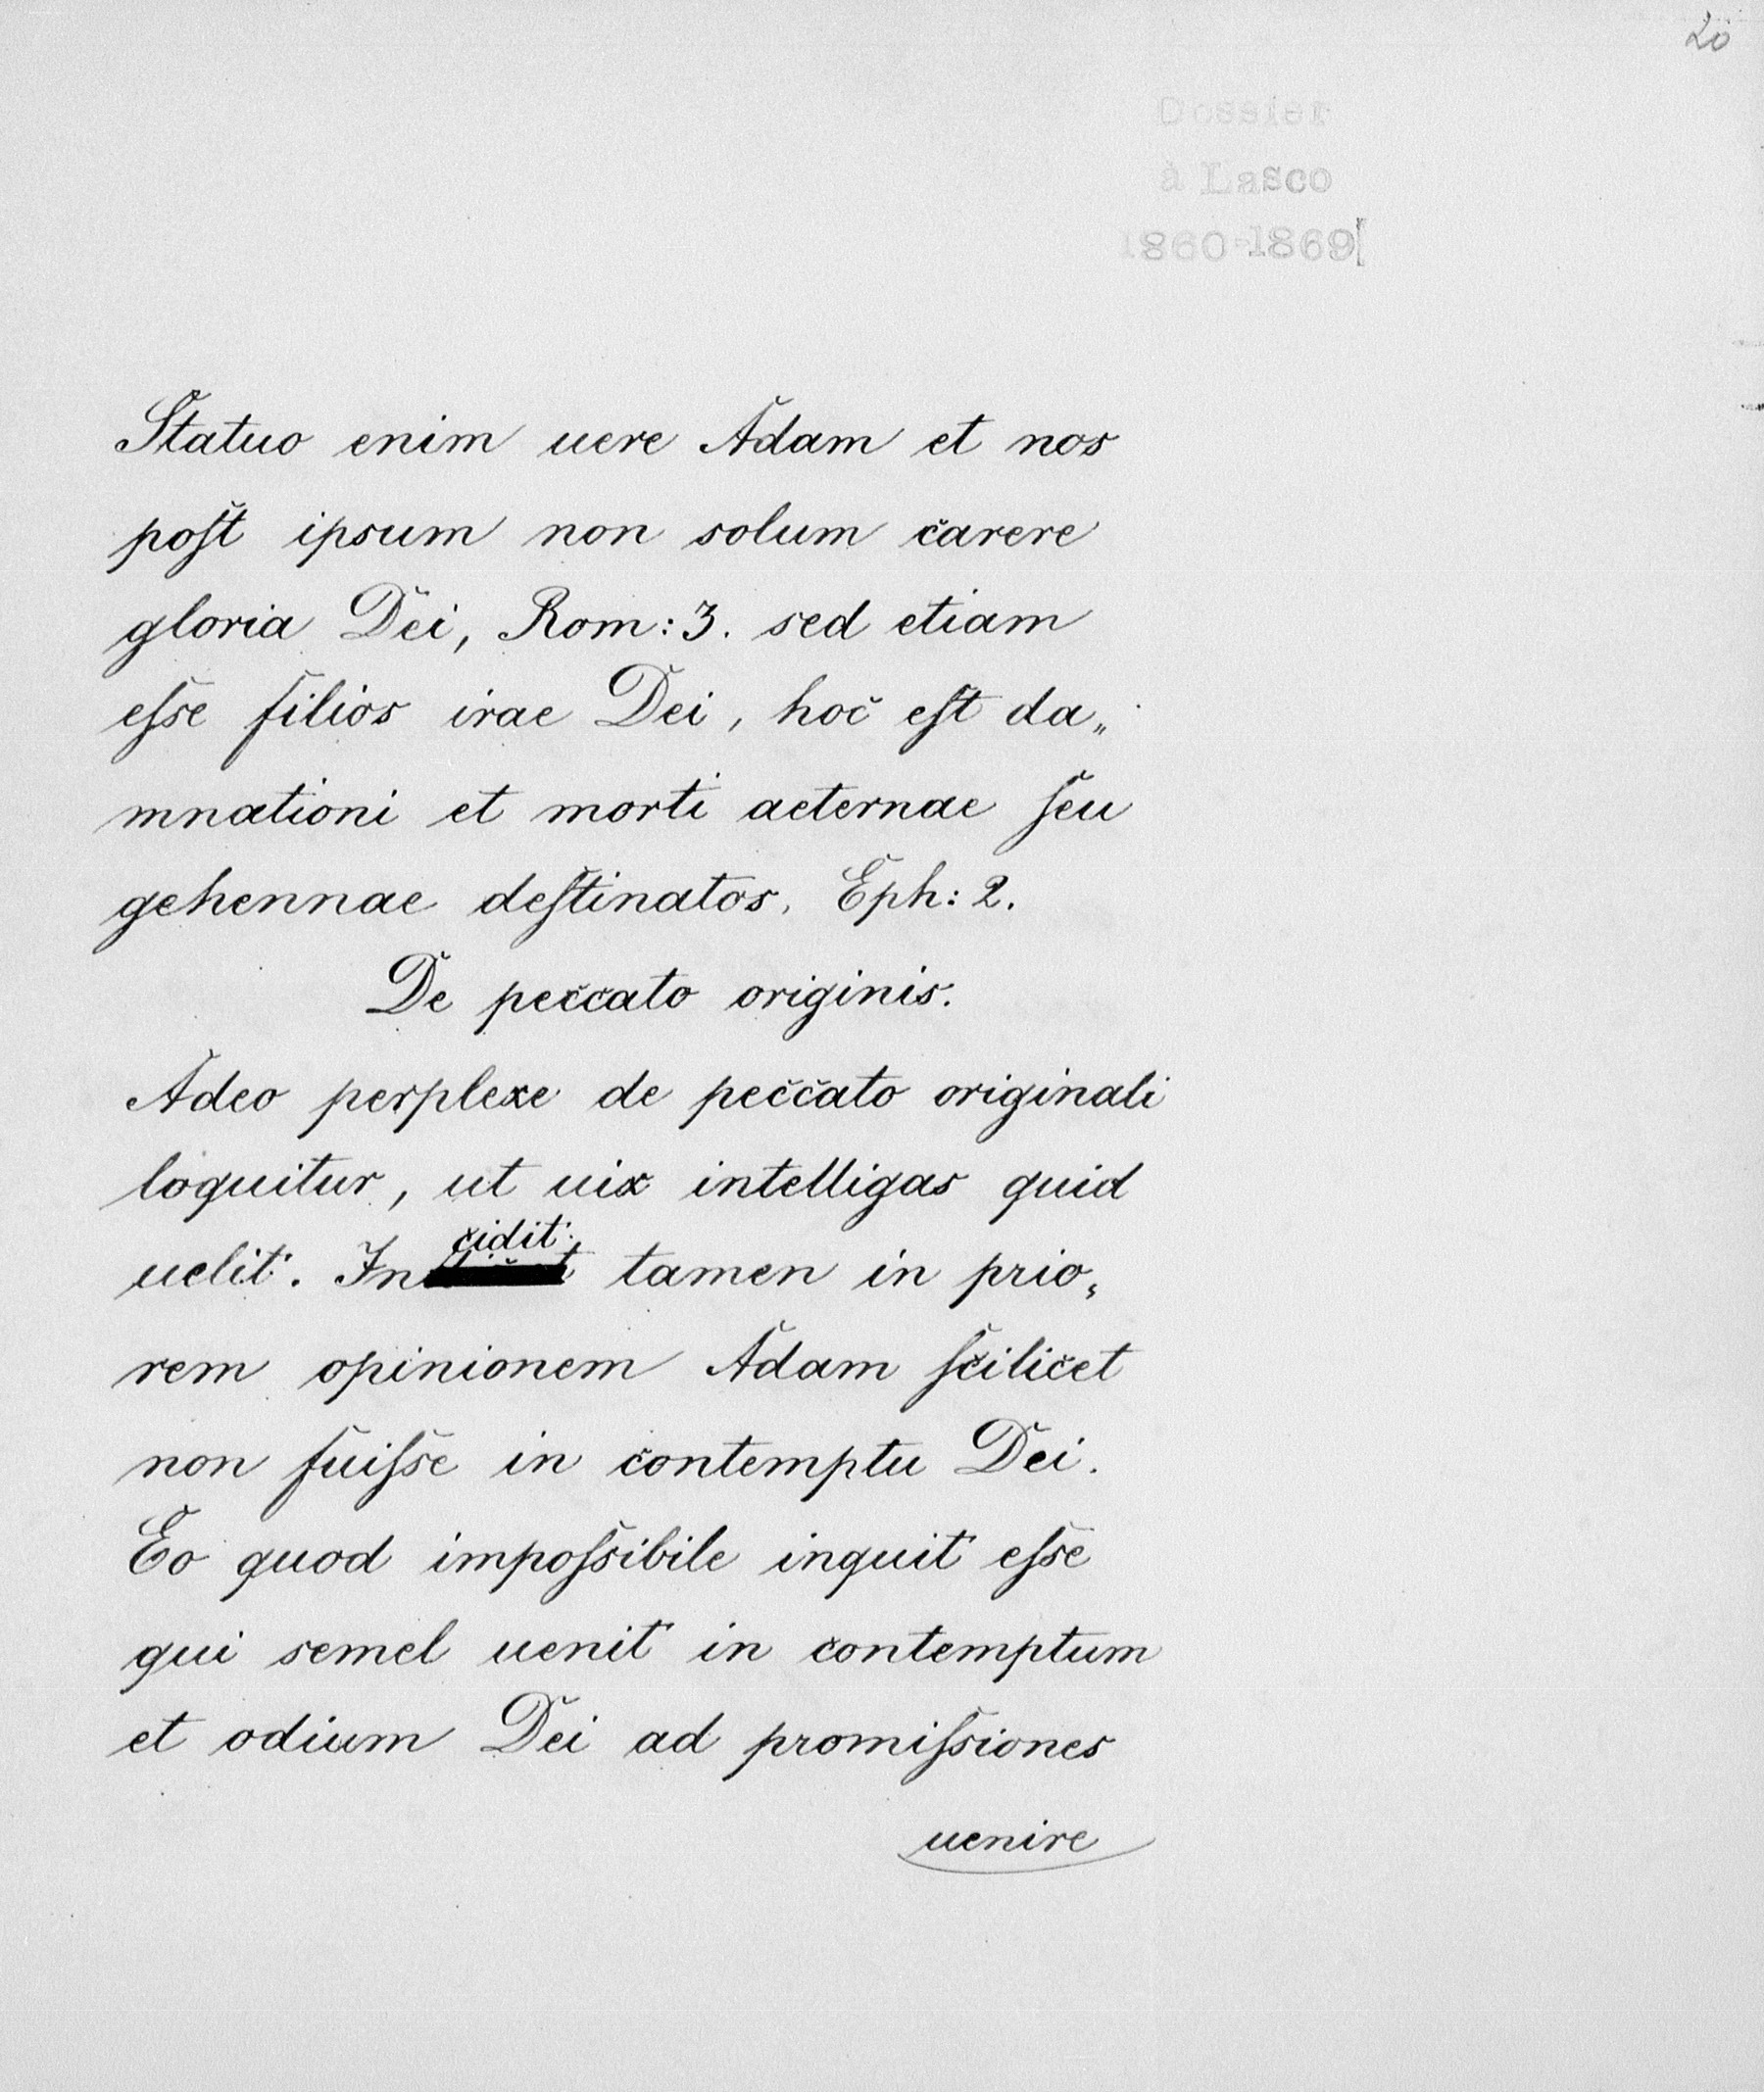 20
Dossier
à Lasco
1860-1869
Statuo enim uere Adam et nos
poſt ipsum non solum carere
gloria Dei, Rom: 3. sed etiam
eſse filios irae Dei, hoc eſt da„
mnationi et morti aeternae ſeu
gehennae deſtinatos, Eph: 2.
De peccato originis.
Adeo perplexe de peccato originali
loquitur, ut uix intelligas quid
uelit. Incidit tamen in prio„
rem opinionem Adam ſcilicet
non fuiſse in contemptu Dei.
Eo quod impoſsibile inquit eſse
qui semel uenit in contemptum
et odium Dei ad promiſsiones
uenire